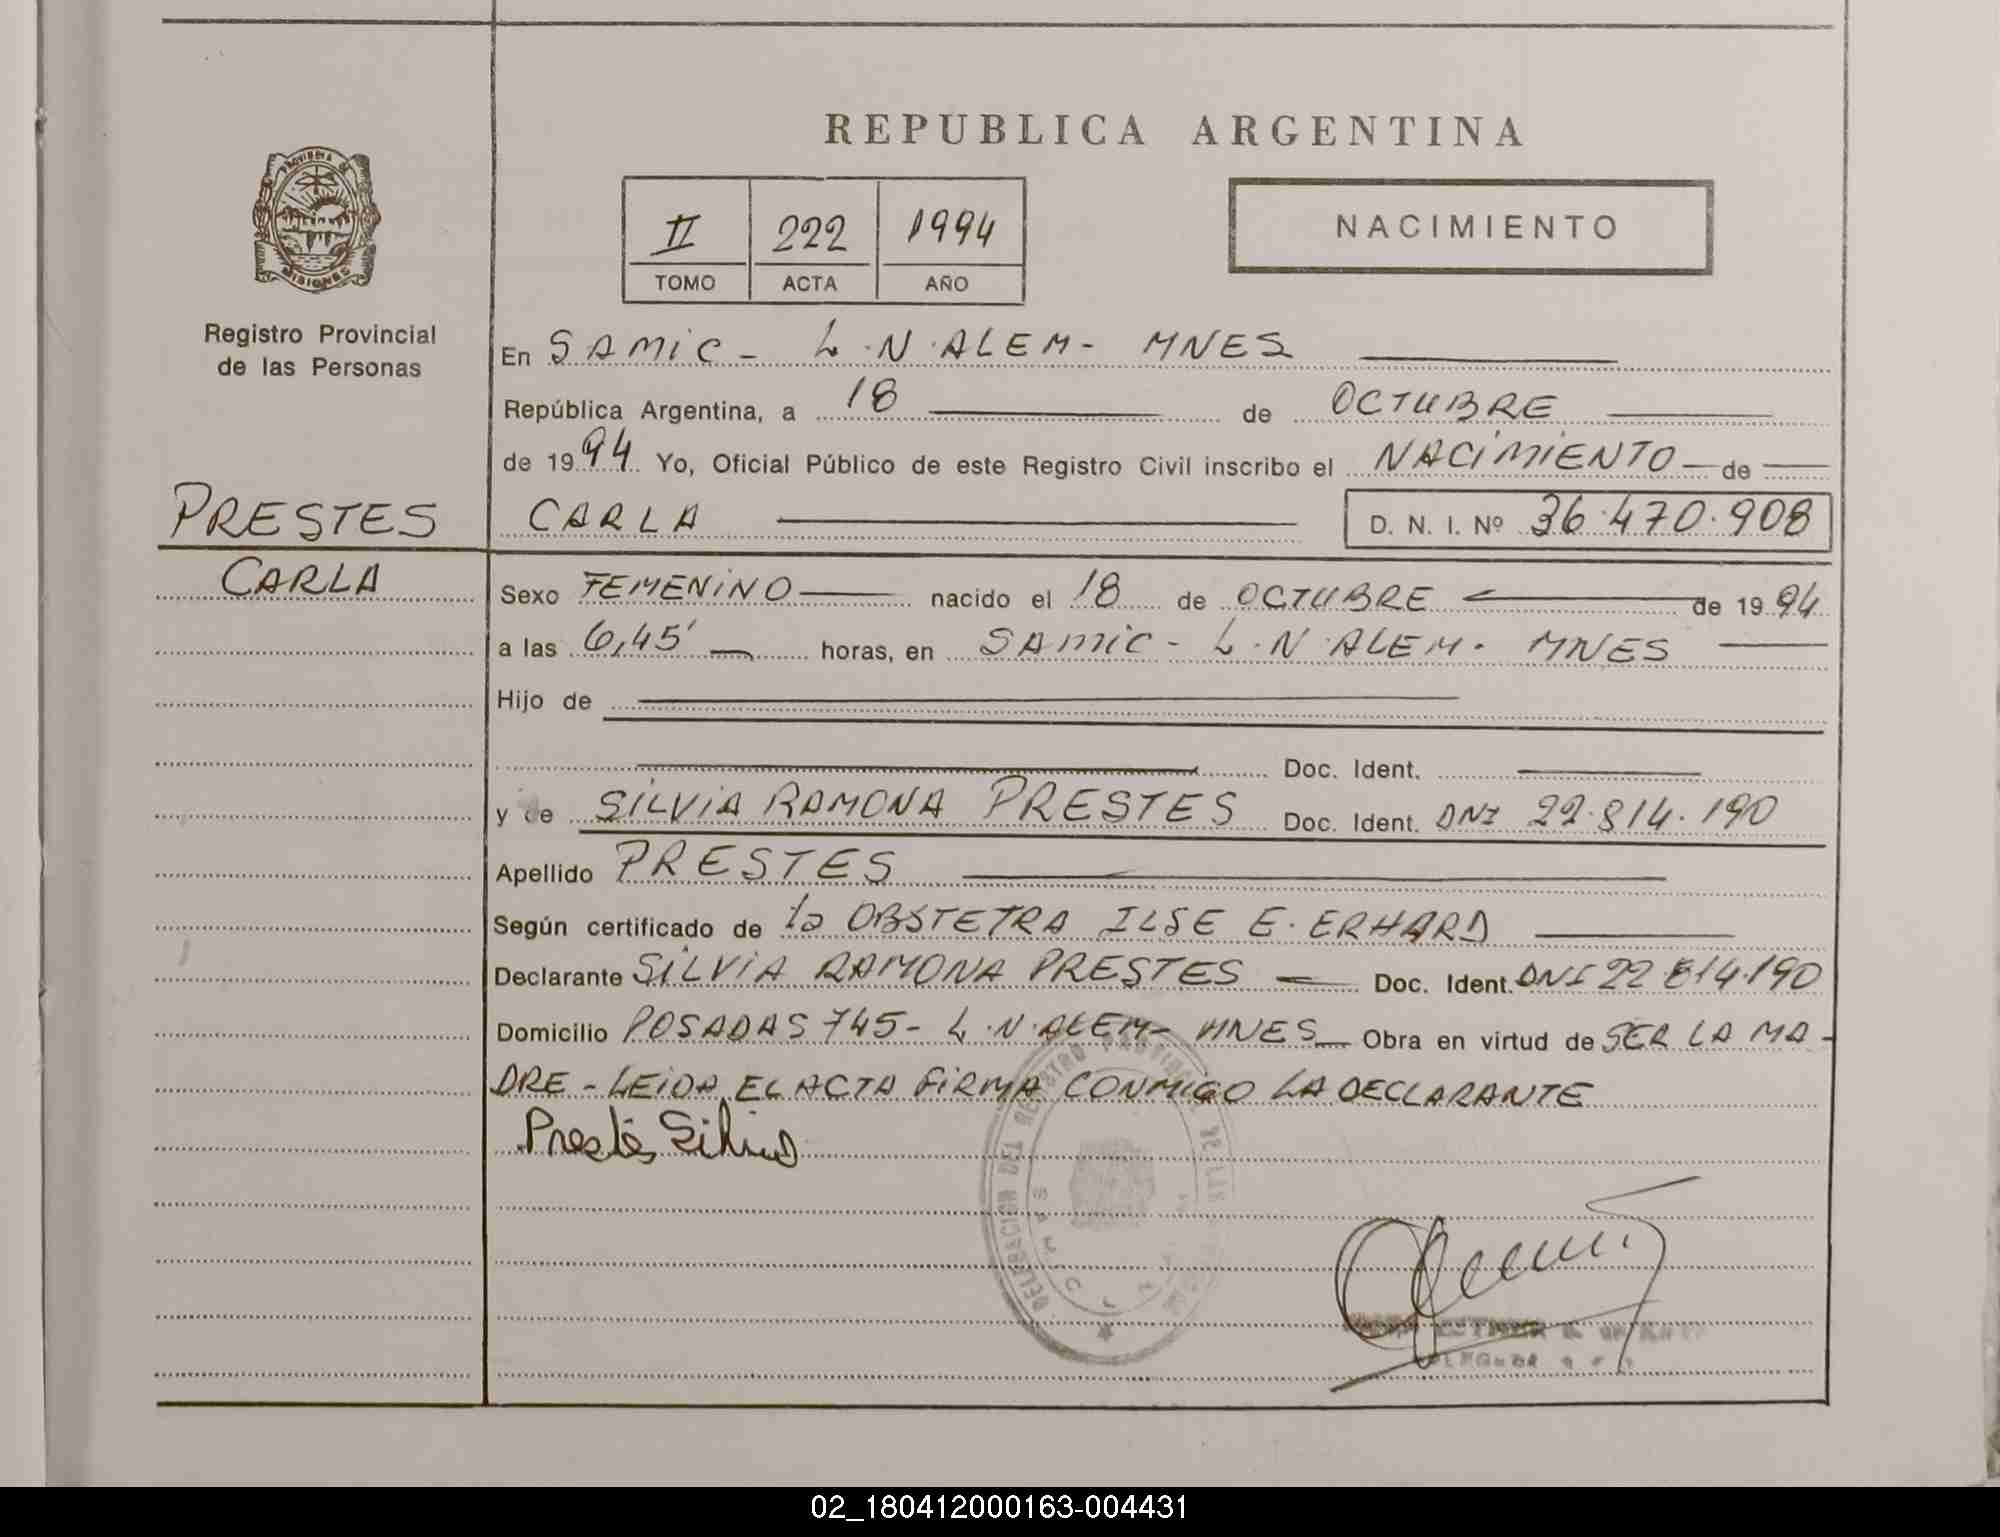 REPUBLICA ARGENTINA
PROVINCIA DE
MISIONES
II 222 1994
TOMO ACTA AÑO
NACIMIENTO
Registro Provincial
de las Personas
En SAMIC - L.N.ALEM - MNES
República Argentina, a 18 de OCTUBRE
de 1994 Yo, Oficial Público de este Registro Civil inscribo el NACIMIENTO de
PRESTES
CARLA D. N. I. Nº 36.470.908
CARLA
Sexo FEMENINO nacido el 18 de OCTUBRE de 1994
a las 6,45' horas, en SAMIC - L.N.ALEM - MNES
Hijo de
Doc. Ident.
y de SILVIA RAMONA PRESTES Doc. Ident. DNI 22.814.190
Apellido PRESTES
Según certificado de la OBSTETRA ILSE E. ERHARD
Declarante SILVIA RAMONA PRESTES Doc. Ident. DNI 22.814.190
Domicilio POSADAS 745 - L.N.ALEM - MNES Obra en virtud de SER LA MA-
DRE - LEIDA EL ACTA FIRMA CONMIGO LA DECLARANTE
Prestes Silvia
DELEGACION DEL REGISTRO PROVINCIAL DE LAS
02_180412000163-004431